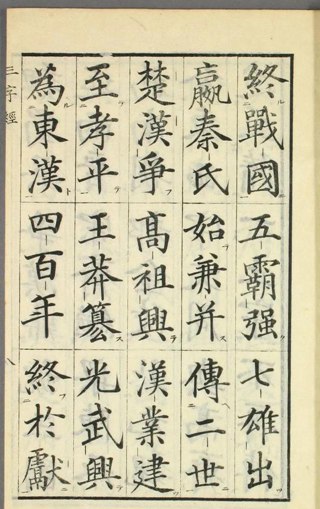 終戰國五霸强七雄出
嬴秦氏始兼并傳二世
楚漢爭高祖興漢業建
至孝平王莽篡光武興
為東漢四百年終於獻
三字經
八